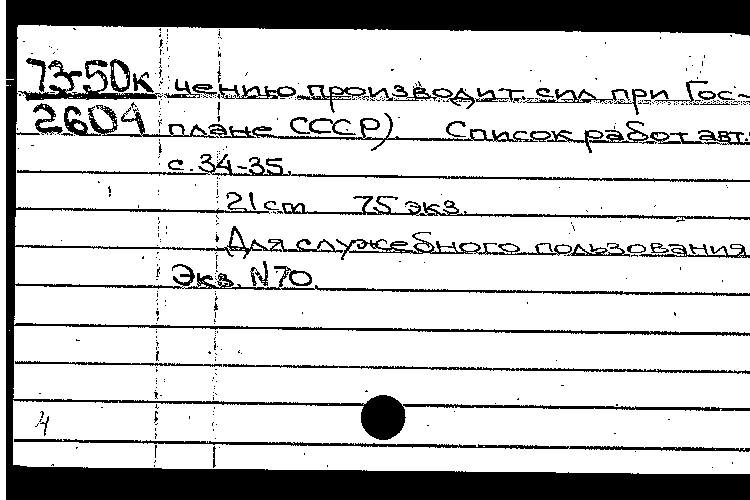 73-50к чению производит. сил при Гос-
2604 плане СССР). Список работ авт.:
с. 34-35.
21 см. 75 экз.
Для служебного пользования
Экз. N 70.
4